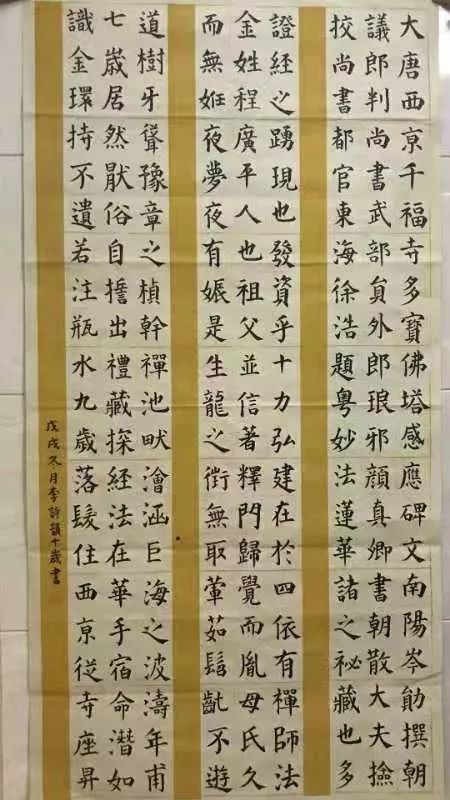 大唐西亰千福寺多寶佛塔感應碑文南陽岑勛撰朝
議郎判尚書武部貟外郎琅邪顏真卿書朝散大夫撿
挍尚書都官東海徐浩題粵妙法蓮華諸之祕藏也多
證經之踴現也發資乎十力弘建在於四依有禪師法
金姓程廣平人也祖父並信著釋門歸覺而胤母氏久
而無姙夜夢夜有娠是生龍之衘無取葷茹髫齓不遊
道樹牙聳豫章之楨幹禪池畎澮涵巨海之波濤年甫
七歲居然猒俗自誓出禮藏探經法在華手宿命潛如
識金環持不遺若注瓶水九歲落髮住西亰従寺座昇
戊戌冬月李韻十歲書